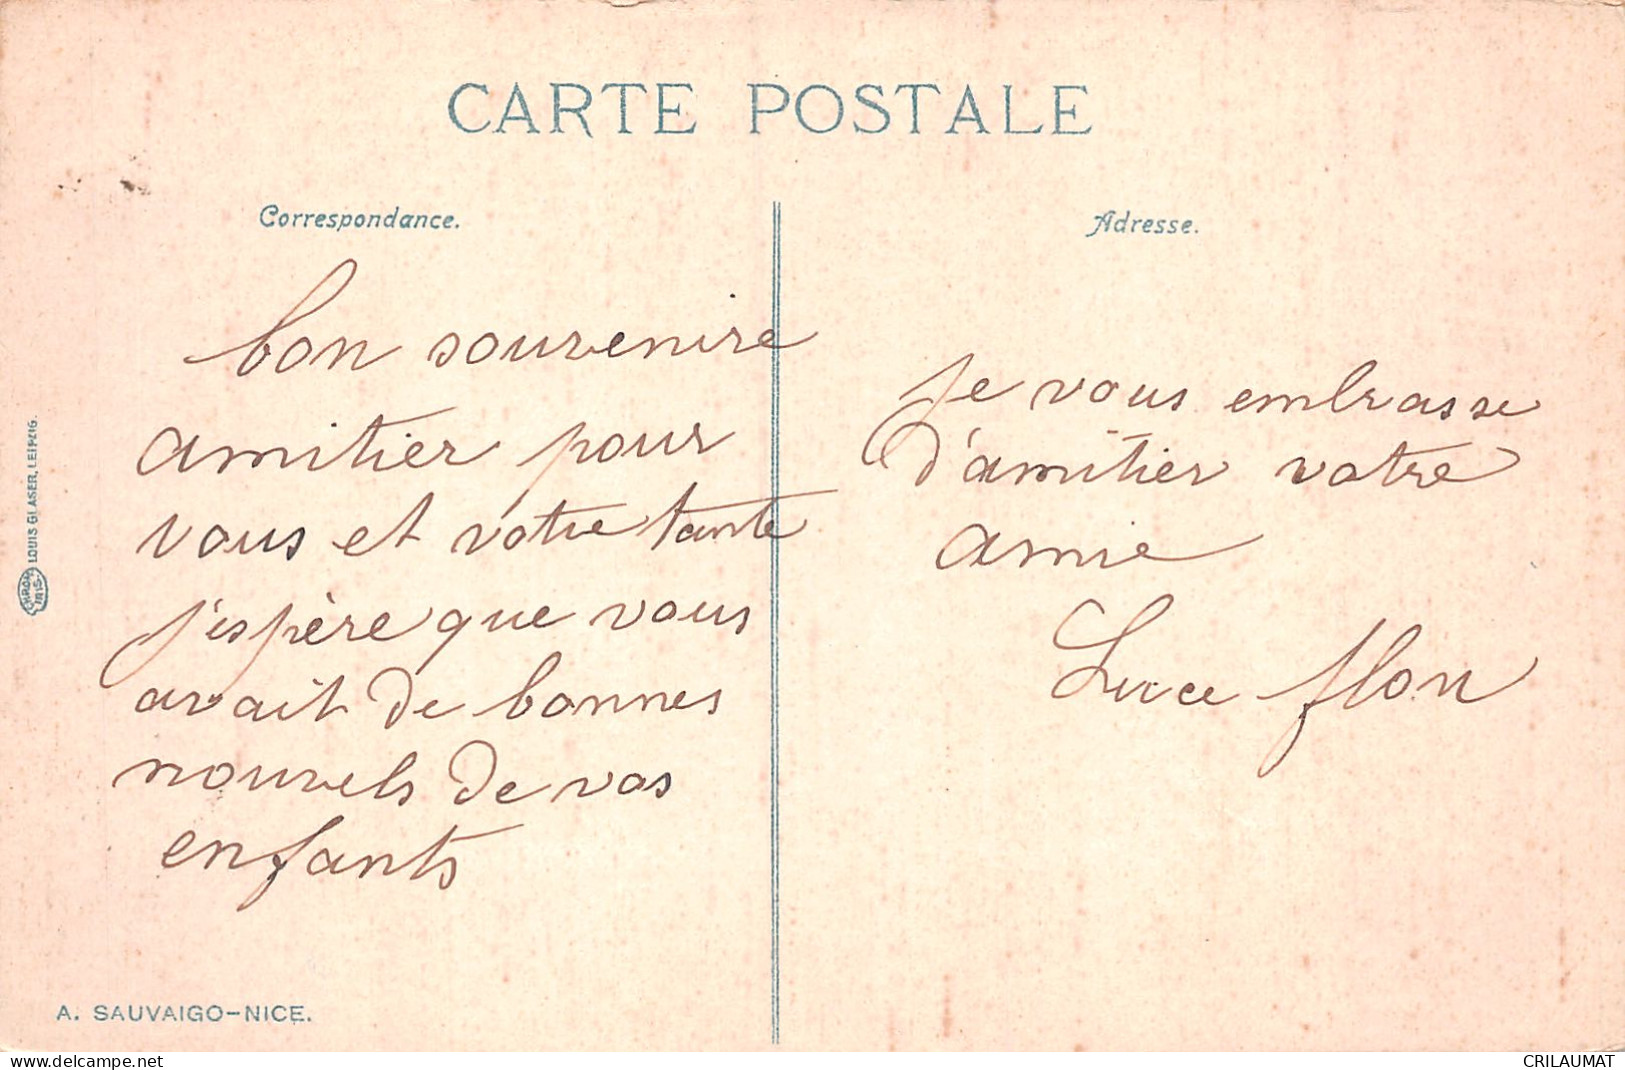 CARTE POSTALE
Correspondance.
bon souvenire
amitier pour
vous et votre tante
j'espère que vous
avait de bonnes
nouvels de vos
enfants
Adresse.
je vous embrasse
d'amitier votre
amie
Luce flon
LOUIS GLASER, LEIPZIG.
CHROM
IRIS
A. SAUVAIGO-NICE.
www.delcampe.net
CRILAUMAT